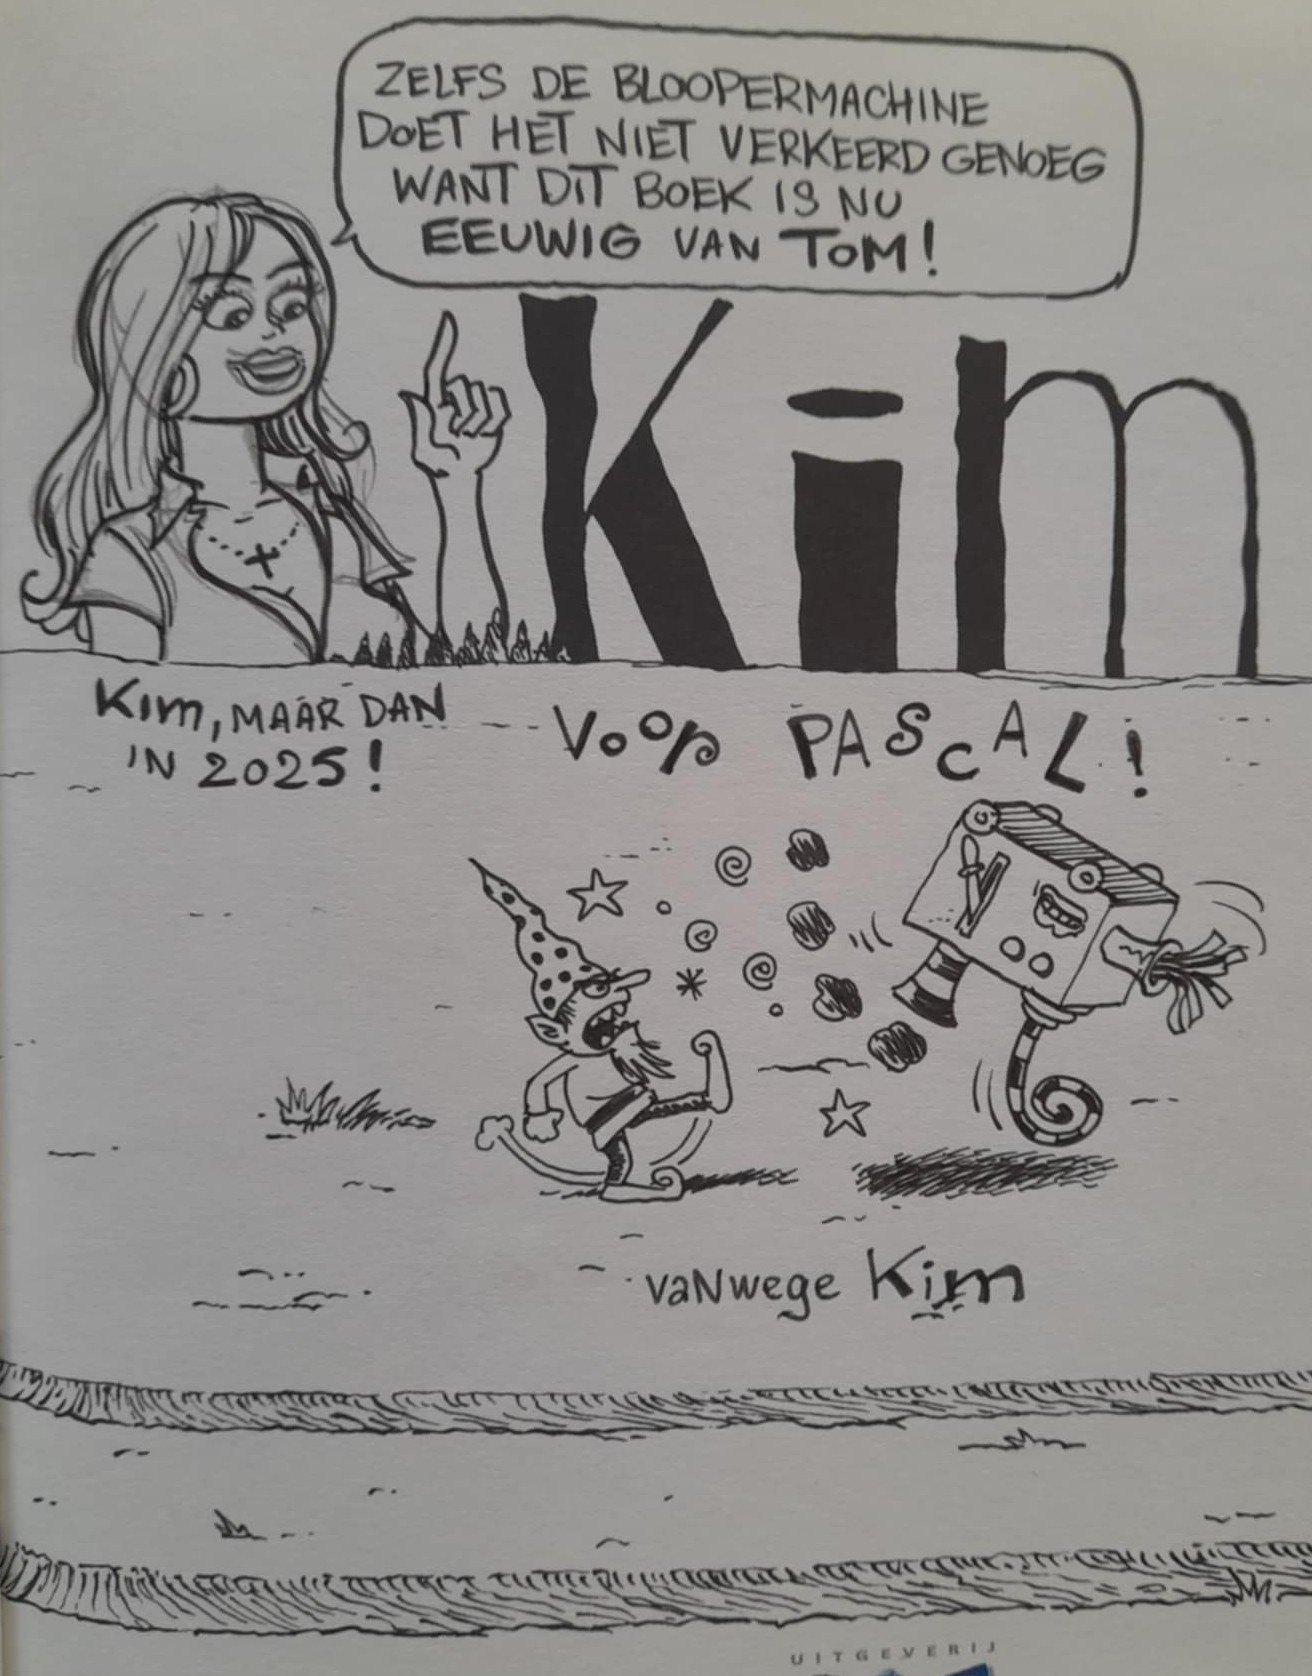 ZELFS DE BLOOPERMACHINE
DOET HET NIET VERKEERD GENOEG
WANT DIT BOEK IS NU
EEUWIG VAN TOM!
Kim
Kim, MAAR DAN
IN 2025!
Voor PASCAL!
vaNwege Kim
UITGEVERIJ